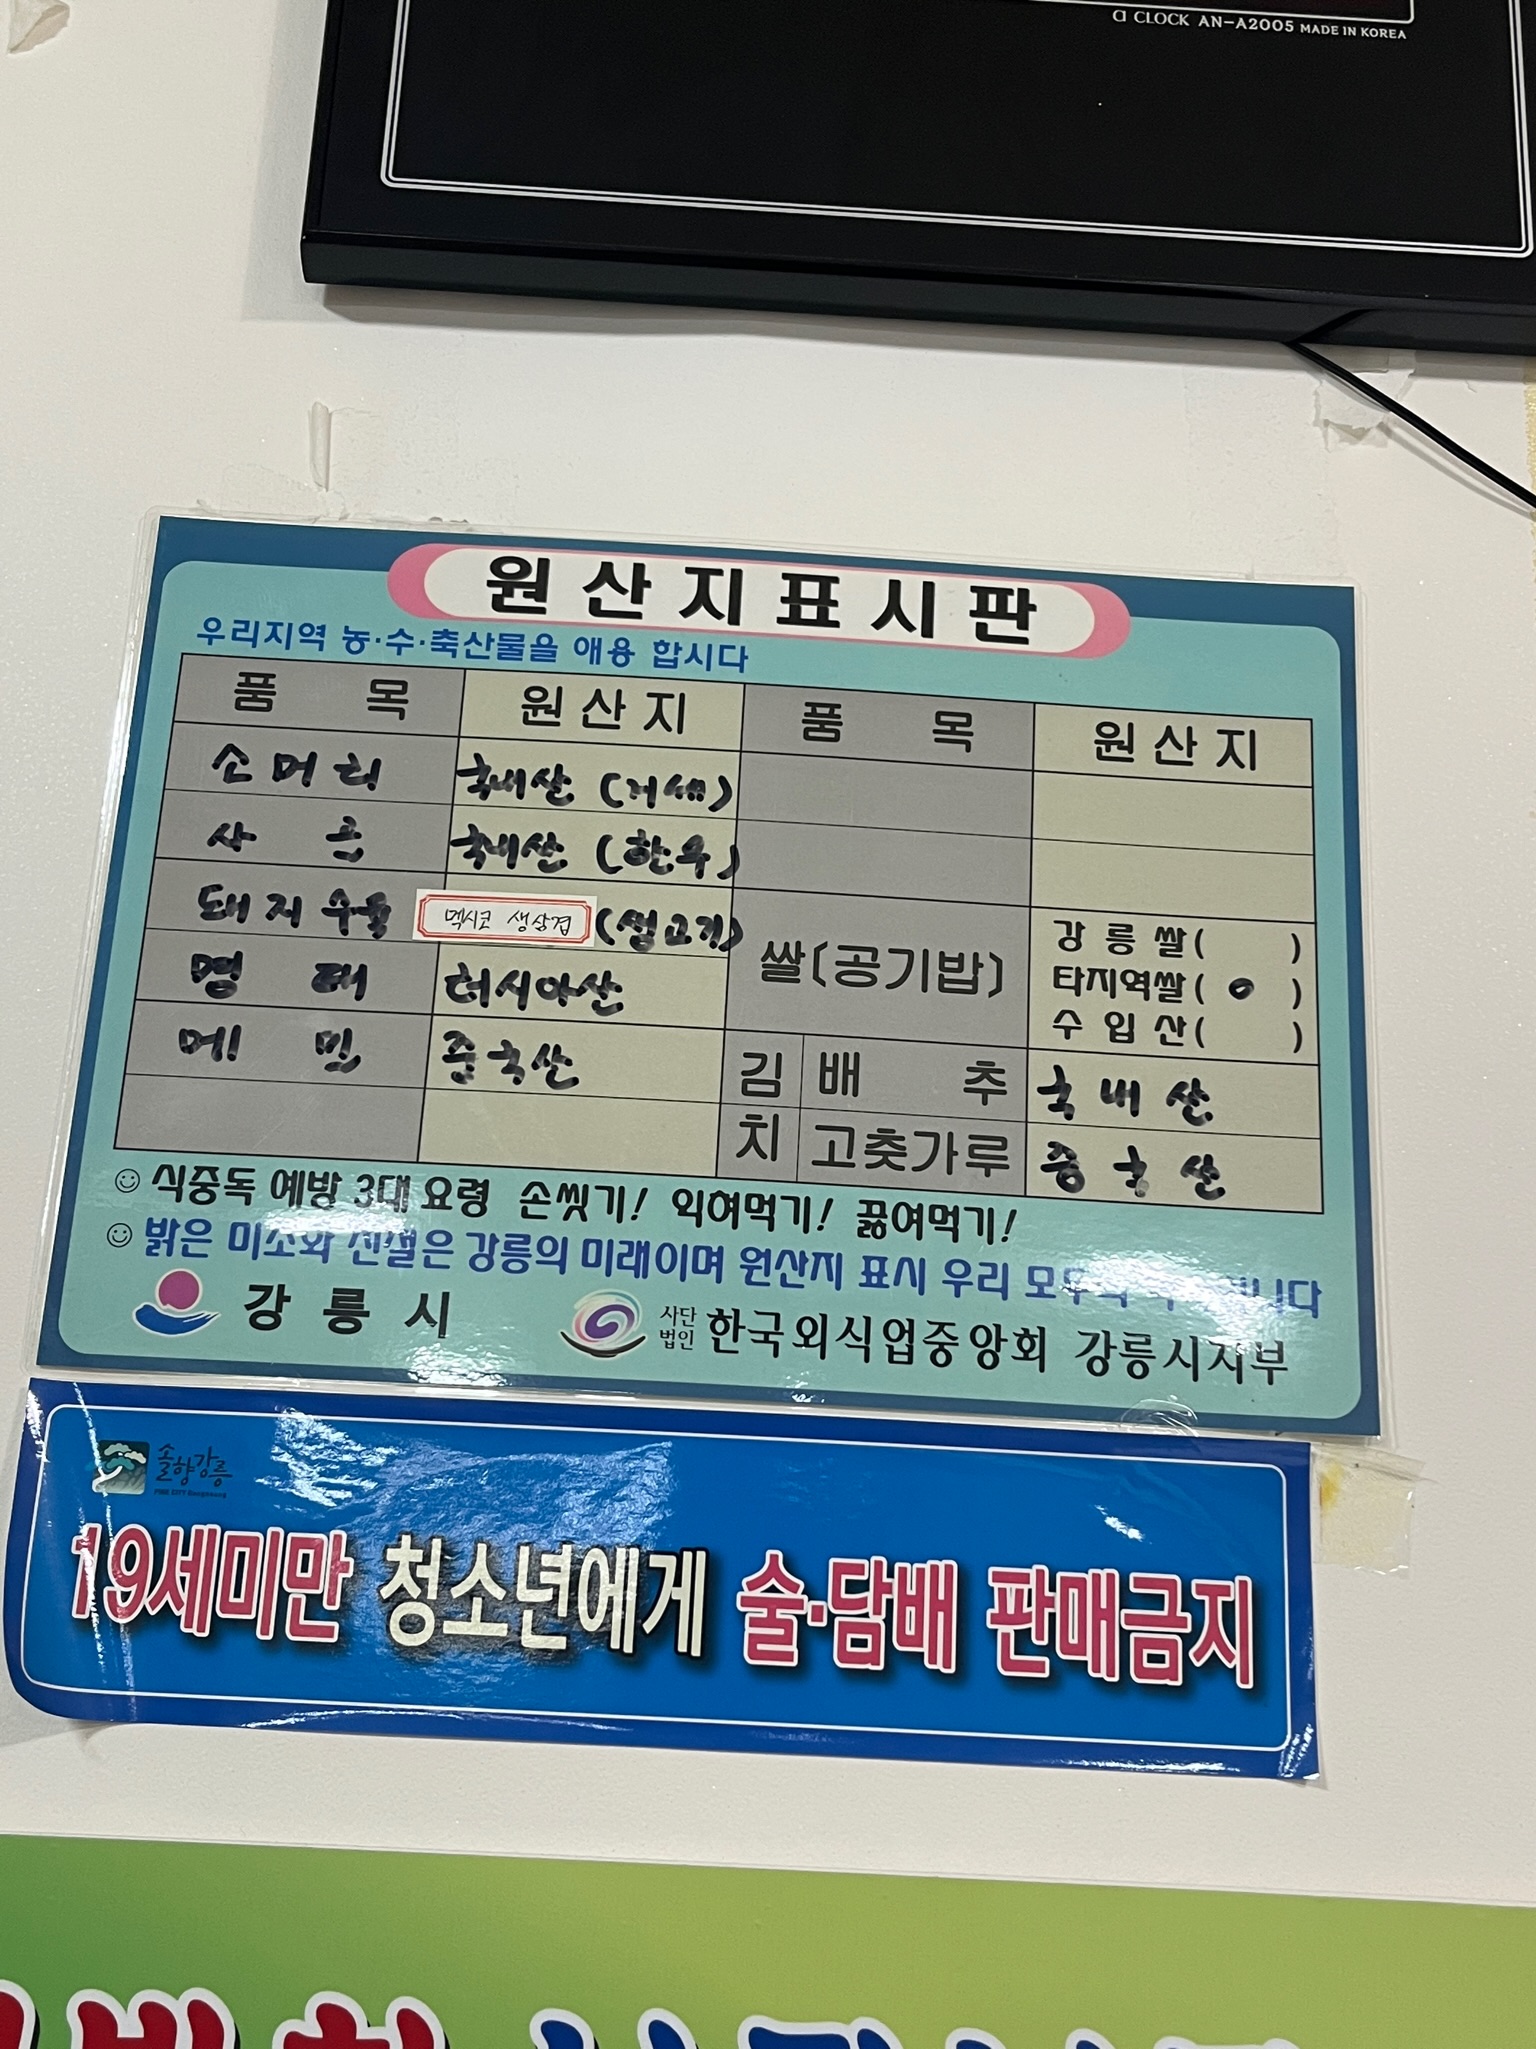 CI CLOCK AN-A2005 MADE IN KOREA
원산지표시판
우리지역 농·수·축산물을 애용 합시다
품 목 원산지 품 목 원산지
소머리 국내산 (거세)
사 골 국내산 (한우)
돼지수육 멕시코 생삼겹 (생고기)
명 태 러시아산
메 밀 중국산
쌀(공기밥)
강릉쌀( )
타지역쌀( o )
수입산( )
김치 배 추 국내산
고춧가루 중국산
식중독 예방 3대 요령 손씻기! 익혀먹기! 끓여먹기!
밝은 미소와 친절은 강릉의 미래이며 원산지 표시 우리 모두의
강릉시
사단법인 한국외식업중앙회 강릉시지부
솔향강릉
PINE CITY Gangneung
19세미만 청소년에게 술·담배 판매금지